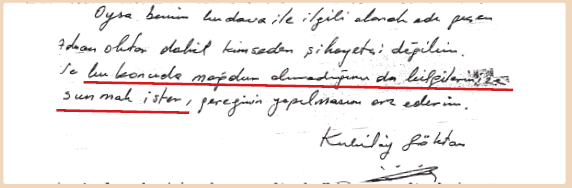 Oysa benim bu dava ile ilgili olarak adı geçen
Adnan Oktar dahil kimseden şikayetçi değilim.
Ve bu konuda mağdur olmadığımı da bilgilerinize
sunmak ister, gereğinin yapılmasını arz ederim.
Göktan